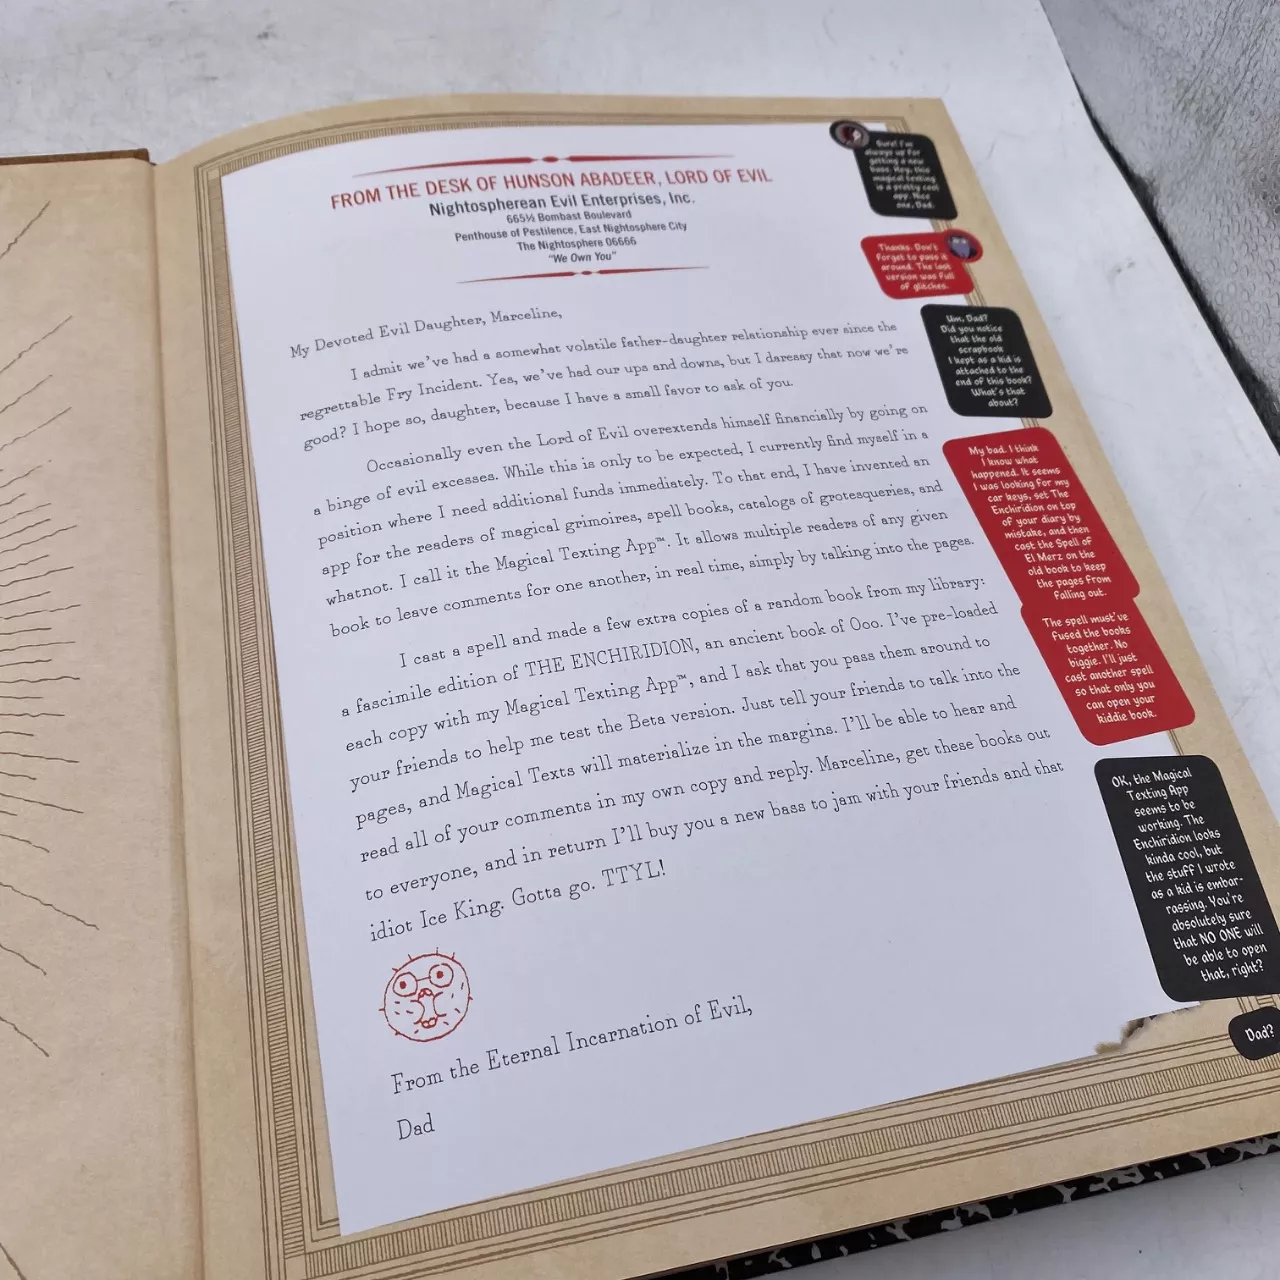 FROM THE DESK OF HUNSON ABADEER, LORD OF EVIL
Nightospherean Evil Enterprises, Inc.
665½ Bombast Boulevard
Penthouse of Pestilence, East Nightosphere City
The Nightosphere 06666
“We Own You”
My Devoted Evil Daughter, Marceline,
I admit we’ve had a somewhat volatile father-daughter relationship ever since the
regrettable Fry Incident. Yes, we’ve had our ups and downs, but I daresay that now we’re
good? I hope so, daughter, because I have a small favor to ask of you.
Occasionally even the Lord of Evil overextends himself financially by going on
a binge of evil excesses. While this is only to be expected, I currently find myself in a
position where I need additional funds immediately. To that end, I have invented an
app for the readers of magical grimoires, spell books, catalogs of grotesqueries, and
whatnot. I call it the Magical Texting App™. It allows multiple readers of any given
book to leave comments for one another, in real time, simply by talking into the pages.
I cast a spell and made a few extra copies of a random book from my library:
a fascimile edition of THE ENCHIRIDION, an ancient book of Ooo. I’ve pre-loaded
each copy with my Magical Texting App™, and I ask that you pass them around to
your friends to help me test the Beta version. Just tell your friends to talk into the
pages, and Magical Texts will materialize in the margins. I’ll be able to hear and
read all of your comments in my own copy and reply. Marceline, get these books out
to everyone, and in return I’ll buy you a new bass to jam with your friends and that
idiot Ice King. Gotta go. TTYL!
From the Eternal Incarnation of Evil,
Dad
Sure! I'm
always up for
getting a new
bass. Hey, this
magical texting
is a pretty cool
app. Nice
one, Dad.
Thanks. Don't
forget to pass it
around. The last
version was full
of glitches.
Um, Dad?
Did you notice
that the old
scrapbook
I kept as a kid is
attached to the
end of this book?
What's that
about?
My bad. I think
I know what
happened. It seems
I was looking for my
car keys, set The
Enchiridion on top
of your diary by
mistake, and then
cast the Spell of
El Merz on the
old book to keep
the pages from
falling out.
The spell must've
fused the books
together. No
biggie. I'll just
cast another spell
so that only you
can open your
kiddie book.
OK, the Magical
Texting App
seems to be
working. The
Enchiridion looks
kinda cool, but
the stuff I wrote
as a kid is embar-
rassing. You're
absolutely sure
that NO ONE will
be able to open
that, right?
Dad?